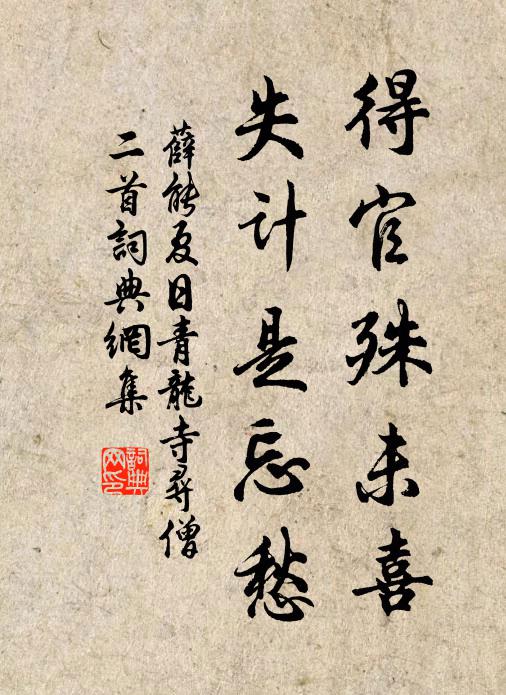 得官殊未喜
失計是忘愁
薛能夏日青龍寺尋僧
二首詞典網集
詞典
網印